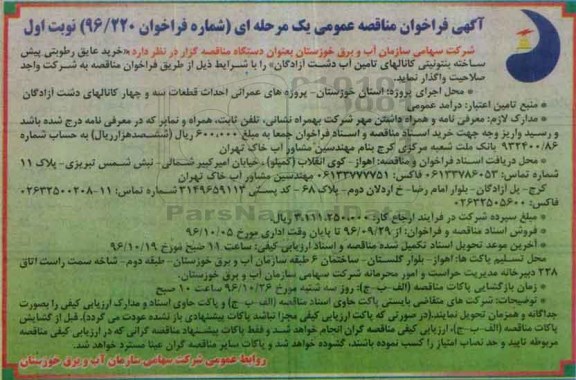 آگهی فراخوان مناقصه عمومی یک مرحله ای (شماره فراخوان ۹۶/۲۲۰) نوبت اول
شرکت سهامی سازمان آب و برق خوزستان بعنوان دستگاه مناقصه گزار در نظر دارد «خرید عایق رطوبتی پیش
ساخته بنتونیتی کانالهای تامین آب دشت آزادگان» را با شرایط ذیل از طریق فراخوان مناقصه به شرکت واجد
صلاحیت واگذار نماید.
* محل اجرای پروژه: استان خوزستان- پروژه های عمرانی احداث قطعات سه و چهار کانالهای دشت آزادگان
* منبع تامین اعتبار: درآمد عمومی
* مدارک لازم: معرفی نامه و همراه داشتن مهر شرکت بهمراه نشانی، تلفن ثابت، همراه و نمابر که در معرفی نامه درج شده باشد
و رسید واریز وجه جهت خرید اسناد مناقصه و اسناد فراخوان جمعا به مبلغ ۶۰۰،۰۰۰ ریال (ششصدهزارریال) به حساب شماره
۹۳۲۴۰۰/۸۶ بانک ملت شعبه مرکزی کرج بنام مهندسین مشاور آب خاک تهران
* محل دریافت اسناد فراخوان و مناقصه: اهواز- کوی انقلاب (کمپلو)، خیابان امیرکبیر شمالی- نبش شمس تبریزی- پلاک ۱۱
شماره تماس: ۰۶۱۳۳۷۸۶۰۵۳ فاکس: ۰۶۱۳۳۷۷۷۷۵۱ مهندسین مشاور آب خاک تهران
کرج- پل آزادگان- بلوار امام رضا- خ اردلان دوم- پلاک ۶۸- کد پستی ۳۱۴۹۶۵۹۱۱۳ شماره تماس: ۱۱-۰۲۶۳۲۵۰۰۲۰۸
فاکس: ۰۲۶۳۲۵۰۵۶۰۰
* مبلغ سپرده شرکت در فرایند ارجاع کار: ۳،۱۱۱،۲۵۰،۰۰۰ ریال
* فروش اسناد مناقصه و فراخوان: از ۹۶/۰۹/۲۹ تا پایان وقت اداری مورخ ۹۶/۱۰/۰۵
* آخرین موعد تحویل اسناد تکمیل شده مناقصه و اسناد ارزیابی کیفی: ساعت ۱۱ صبح مورخ ۹۶/۱۰/۱۹
محل تسلیم پاکت ها: اهواز- بلوار گلستان- ساختمان ۶ طبقه سازمان آب و برق خوزستان- طبقه دوم- شاخه سمت راست اتاق
۲۲۸ دبیرخانه مدیریت حراست و امور محرمانه شرکت سهامی سازمان آب و برق خوزستان.
* زمان بازگشایی پاکات مناقصه (الف-ب-ج): روز سه شنبه مورخ ۹۶/۱۰/۲۶ ساعت ۱۰ صبح
* توضیحات: شرکت های متقاضی بایستی پاکت حاوی اسناد مناقصه (الف-ب-ج) و پاکت حاوی اسناد و مدارک ارزیابی کیفی را بصورت
جداگانه و همزمان تحویل نمایند.(در صورتی که پاکت ارزیابی کیفی مجزا نباشد پاکات پیشنهادی باز نشده عودت می گردد). قبل از گشایش
پاکات مناقصه (الف-ب-ج)، ارزیابی کیفی مناقصه گران انجام خواهد شد و فقط پاکات پیشنهاد مناقصه گرانی که در ارزیابی کیفی مناقصه
مربوطه تایید و حد نصاب امتیاز را کسب نموده باشند، گشوده خواهد شد و پاکات سایر مناقصه گران عینا مسترد خواهد شد.
روابط عمومی شرکت سهامی سازمان آب و برق خوزستان